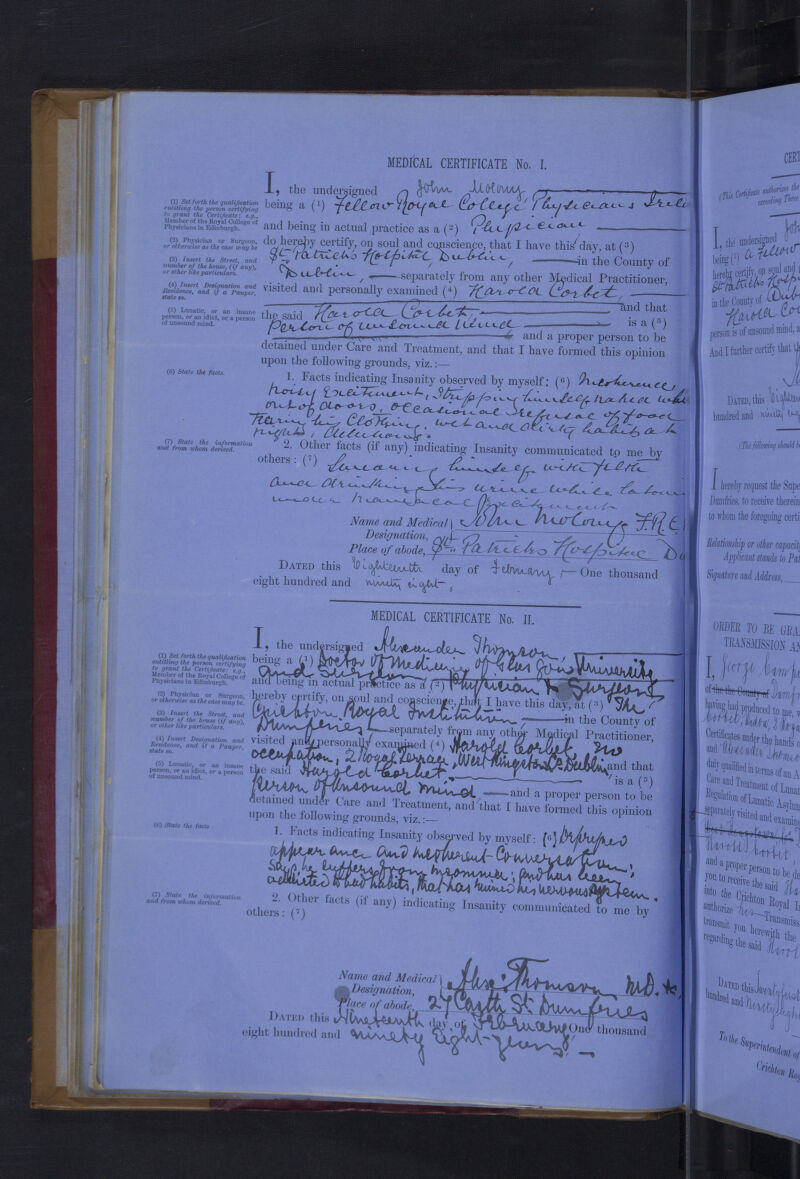 MEDICAL CERTIFICATE No. I.
I, the undersigned John Molony,
being a (1) Fellow Royal College Physicians
and being in actual practice as a (2) Physician
do hereby certify, on soul and conscience, that I have this day, at (3)
St. Patrick's Hospital Dublin, in the County of
Dublin, separately from any other Medical Practitioner,
visited and personally examined (4) Harold Corbet,
and that
the said Harold Corbet, is a (5)
Person of unsound Mind
and a proper person to be
detained under Care and Treatment, and that I have formed this opinion
upon the following grounds, viz.:—
1. Facts indicating Insanity observed by myself: (6) Incoherence,
noisy Excitement, Stripping himself naked
out of doors, occasional refusal of food
Tearing his Clothing, wet and dirty habits at
night, Delusions.
2. Other facts (if any) indicating Insanity communicated to me by
others: (7) Smearing himself with filth
and drinking his urine while
under Maniacal Excitement
Name and Medical Designation, John Molony F.R.C.
Place of abode, St. Patrick's Hospital
DATED this Eighteenth day of February, One thousand
eight hundred and ninety eight,
(1) Set forth the qualification
entitling the person certifying
to grant the Certificate; e.g.,
Member of the Royal College of
Physicians in Edinburgh.
(2) Physician or Surgeon,
or otherwise as the case may be
(3) Insert the Street, and
number of the house, (if any),
or other like particulars.
(4) Insert Designation and
Residence, and if a Pauper,
state so.
(5) Lunatic, or an insane
person, or an idiot, or a person
of unsound mind.
(6) State the facts.
(7) State the information
and from whom derived.
MEDICAL CERTIFICATE No. II.
I, the undersigned Alexander Thomson,
being a (1) Doctor of Medicine of Glasgow University
and Surgeon
and being in actual practice as a (2) Physician & Surgeon
hereby certify, on soul and conscience, that I have this day, at (3) The
Crichton Royal Institution, in the County of
Dumfries separately from any other Medical Practitioner,
visited and personally examined (4) Harold Corbet, no
occupation, 2 Royal Terrace, West Kingstown, Dublin and that
the said Harold Corbet. is a (5)
Person of unsound mind and a proper person to be
detained under Care and Treatment, and that I have formed this opinion
upon the following grounds, viz.:—
1. Facts indicating Insanity observed by myself: (6) Depressed
appearance and incoherent Conversation;
Says he suffers from insomnia; and has been
addicted to bad habits, that has ruined his nervous system.
2. Other facts (if any) indicating Insanity communicated to me by
others: (7)
Name and Medical Designation, Alex. Thomson M.D.
Place of abode, 27 Castle St. Dumfries
DATED this Nineteenth day of February One thousand
eight hundred and ninety Eight-years.
(1) Set forth the qualification
entitling the person certifying
to grant the Certificate; e.g.,
Member of the Royal College of
Physicians in Edinburgh.
(2) Physician or Surgeon,
or otherwise as the case may be.
(3) Insert the Street, and
number of the house (if any),
or other like particulars.
(4) Insert Designation and
Residence, and if a Pauper,
state so.
(5) Lunatic, or an insane
person, or an idiot, or a person
of unsound mind.
(6) State the facts
(7) State the information
and from whom derived.
(This Certificate authorises the
I, the undersigned
being (1) a Fellow
hereby certify, on soul and
St Patricks
in the County of
Harold
person is of unsound mind,
And I further certify that
DATED, this
hundred and ninety
(The following should
I hereby request the
Dumfries, to receive therein
to whom the foregoing
Relationship or other
Applicant stands to
Signature and Address,
ORDER TO BE
TRANSMISSION
I, George
of the County of
having had produced to me,
Certificates under the hands
and Alexander
duly qualified in terms of an
Care and Treatment of
Regulation of Lunatic
separately visited and
Harold Corbet,
and a proper person to be
you to receive the said
into the Crichton Royal
authorize
transmit you herewith the
regarding the said
DATED this
hundred and Ninety
To the Superintendent of
Crichton